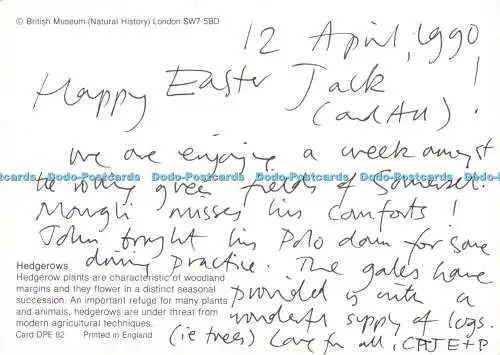 © British Museum (Natural History) London SW7 5BD
12 April, 1990
Happy Easter Jack !
(and All)
We are enjoying a week amongst
Dodo-Postcards Dodo-Postcards Dodo-Postcards Dodo-Postcards
the rolling green fields of Somerset.
Mowgli misses his comforts !
John brought his Polo down for some
driving practice. The gales have
provided us with a
wonderful supply of logs.
(ie trees) Love for all,
Hedgerows
Hedgerow plants are characteristic of woodland
margins and they flower in a distinct seasonal
succession. An important refuge for many plants
and animals, hedgerows are under threat from
modern agricultural techniques.
Card DPE 82 Printed in England